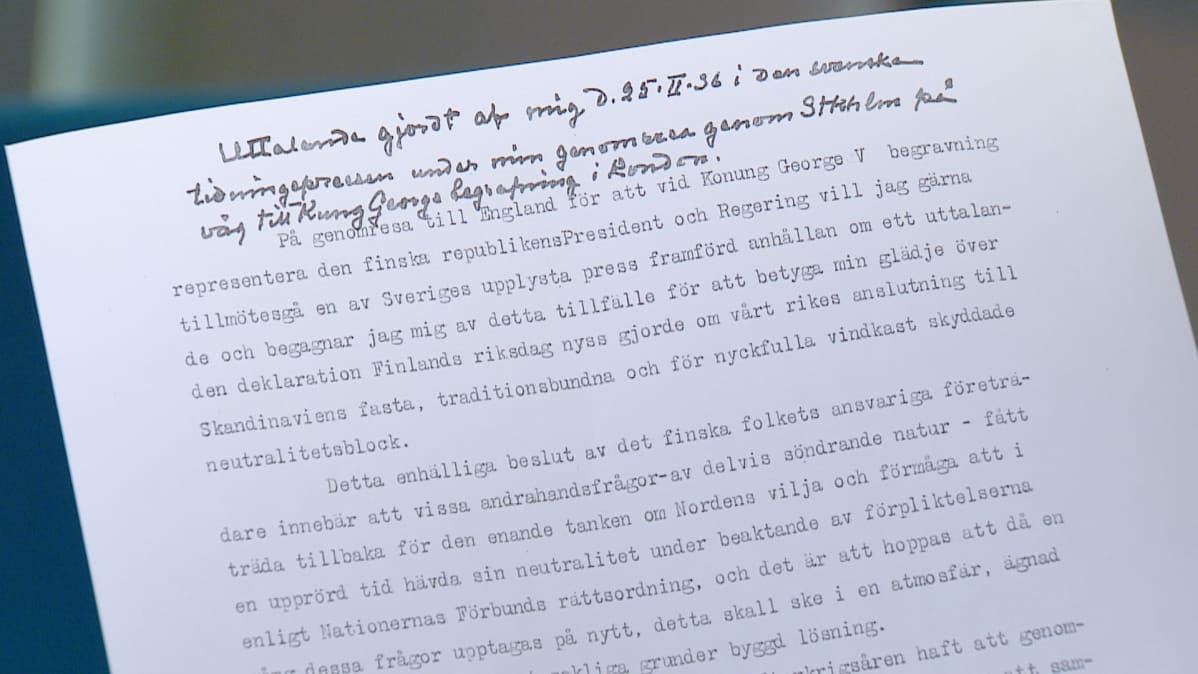 Uttalande gjordt af mig d. 25. II. 36 i den svenska
tidningspressen under min genomresa genom Sthholm på
väg till Kung Georgs begrafning i London.
På genomresa till England för att vid Konung George V begravning
representera den finska republikensPresident och Regering vill jag gärna
tillmötesgå en av Sveriges upplysta press framförd anhållan om ett uttalan-
de och begagnar jag mig av detta tillfälle för att betyga min glädje över
den deklaration Finlands riksdag nyss gjorde om vårt rikes anslutning till
Skandinaviens fasta, traditionsbundna och för nyckfulla vindkast skyddade
neutralitetsblock.
Detta enhälliga beslut av det finska folkets ansvariga företrä-
dare innebär att vissa andrahandsfrågor-av delvis söndrande natur - fått
träda tillbaka för den enande tanken om Nordens vilja och förmåga att i
en upprörd tid hävda sin neutralitet under beaktande av förpliktelserna
enligt Nationernas Förbunds rättsordning, och det är att hoppas att då en
dessa frågor upptagas på nytt, detta skall ske i en atmosfär, ägnad
grunder byggd lösning.
krigsåren haft att genom-
sam-